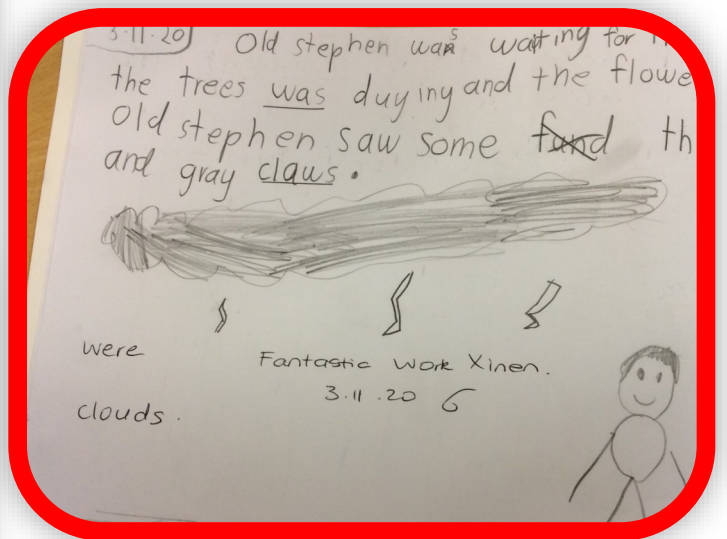 3.11.20 Old stephen was waiting for
the trees was duying and the flowe
Old stephen saw some fand th
and gray claws.
were
Fantastic work Xinen.
3.11.20
clouds.